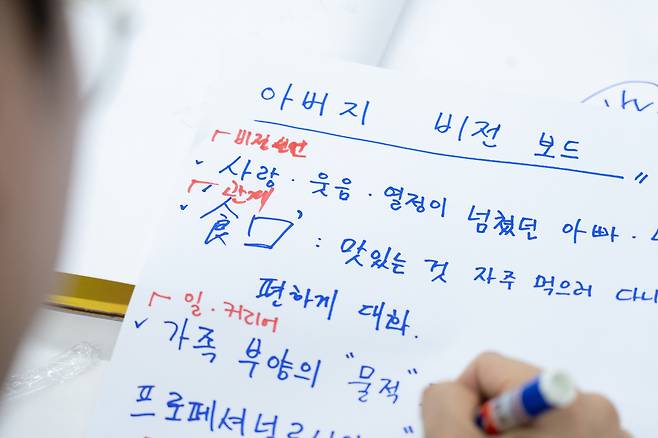 아버지 비전 보드
비전선언
✓ 사랑 · 웃음 · 열정이 넘쳤던 아빠 ·
관계
✓ '食口' : 맛있는 것 자주 먹으러 다니
편하게 대화.
일 · 커리어
✓ 가족 부양의 "물적"
프로페셔널로서의